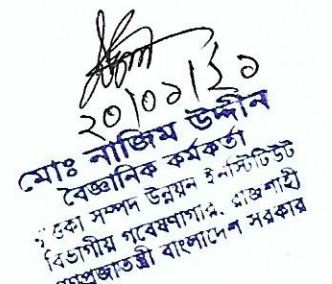 ২০|০১|২১
মোঃ নাজিম উদ্দীন
বৈজ্ঞানিক কর্মকর্তা
সম্পদ উন্নয়ন ইনস্টিটিউট
বিভাগীয় গবেষণাগার, রাজশাহী
গণপ্রজাতন্ত্রী বাংলাদেশ সরকার